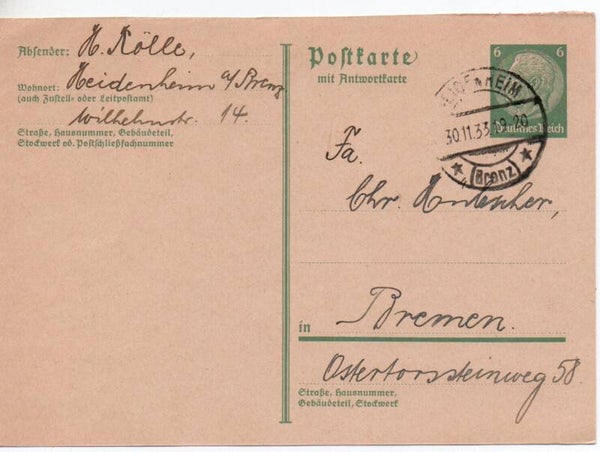 Absender: H. Kölle,
Wohnort: Heidenheim a/Brenz
(auch Zustell- oder Leitpostamt)
Wilhelmstr. 14.
Straße, Hausnummer, Gebäudeteil,
Stockwerk od. Postschließfachnummer
Postkarte
mit Antwortkarte
6 6
Deutsches Reich
HEIDENHEIM
30.11.33.19-20
(Brenz)
Fa.
Chr.
in Bremen.
Ostertorsteinweg 58.
Straße, Hausnummer,
Gebäudeteil, Stockwerk